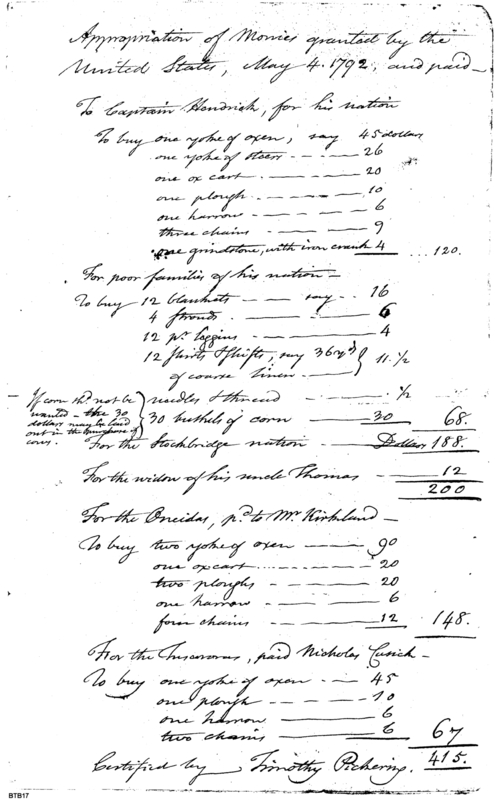 Appropriation of Monies granted by the
United States, May 4. 1792, and paid—
To Captain Hendrick, for his nation
To buy one yoke of oxen, say 45 dollars
one yoke of steers 26
one ox cart 20
one plough 10
one harrow 6
three chains 9
one grindstone, with iron crank 4 120.
For poor families of his nation—
To buy 12 blankets say 16
4 strouds 6
12 pr. leggins 4
12 shirts & shifts, say 36 yds
of coarse linen 11.1/2
needles & thread 1/2
30 bushels of corn 30 68.
If corn shd. not be
wanted — the 30
dollars may be laid
out in the purchase of
cows.
For the Stockbridge nation Dollars 188.
For the widow of his uncle Thomas 12
200
For the Oneidas, pd. to Mr. Kirkland—
To buy two yoke of oxen 90
one ox cart 20
two ploughs 20
one harrow 6
four chains 12 148.
For the Tuscaroras, paid Nicholas Cusick—
To buy one yoke of oxen 45
one plough 10
one harrow 6
two chains 6 67
415.
Certified by Timothy Pickering.
BTB17